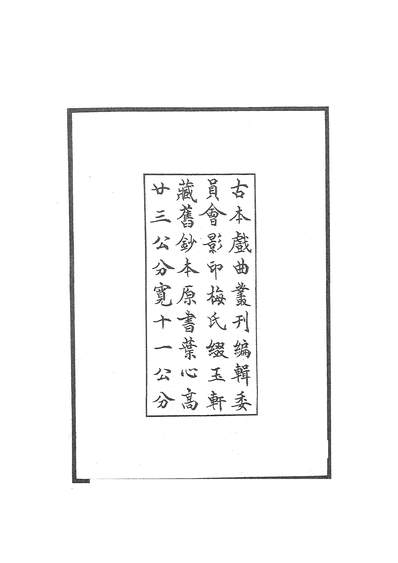 古本戲曲叢刊編輯委
員會影印梅氏綴玉軒
藏舊鈔本原書葉心高
廿三公分寬十一公分